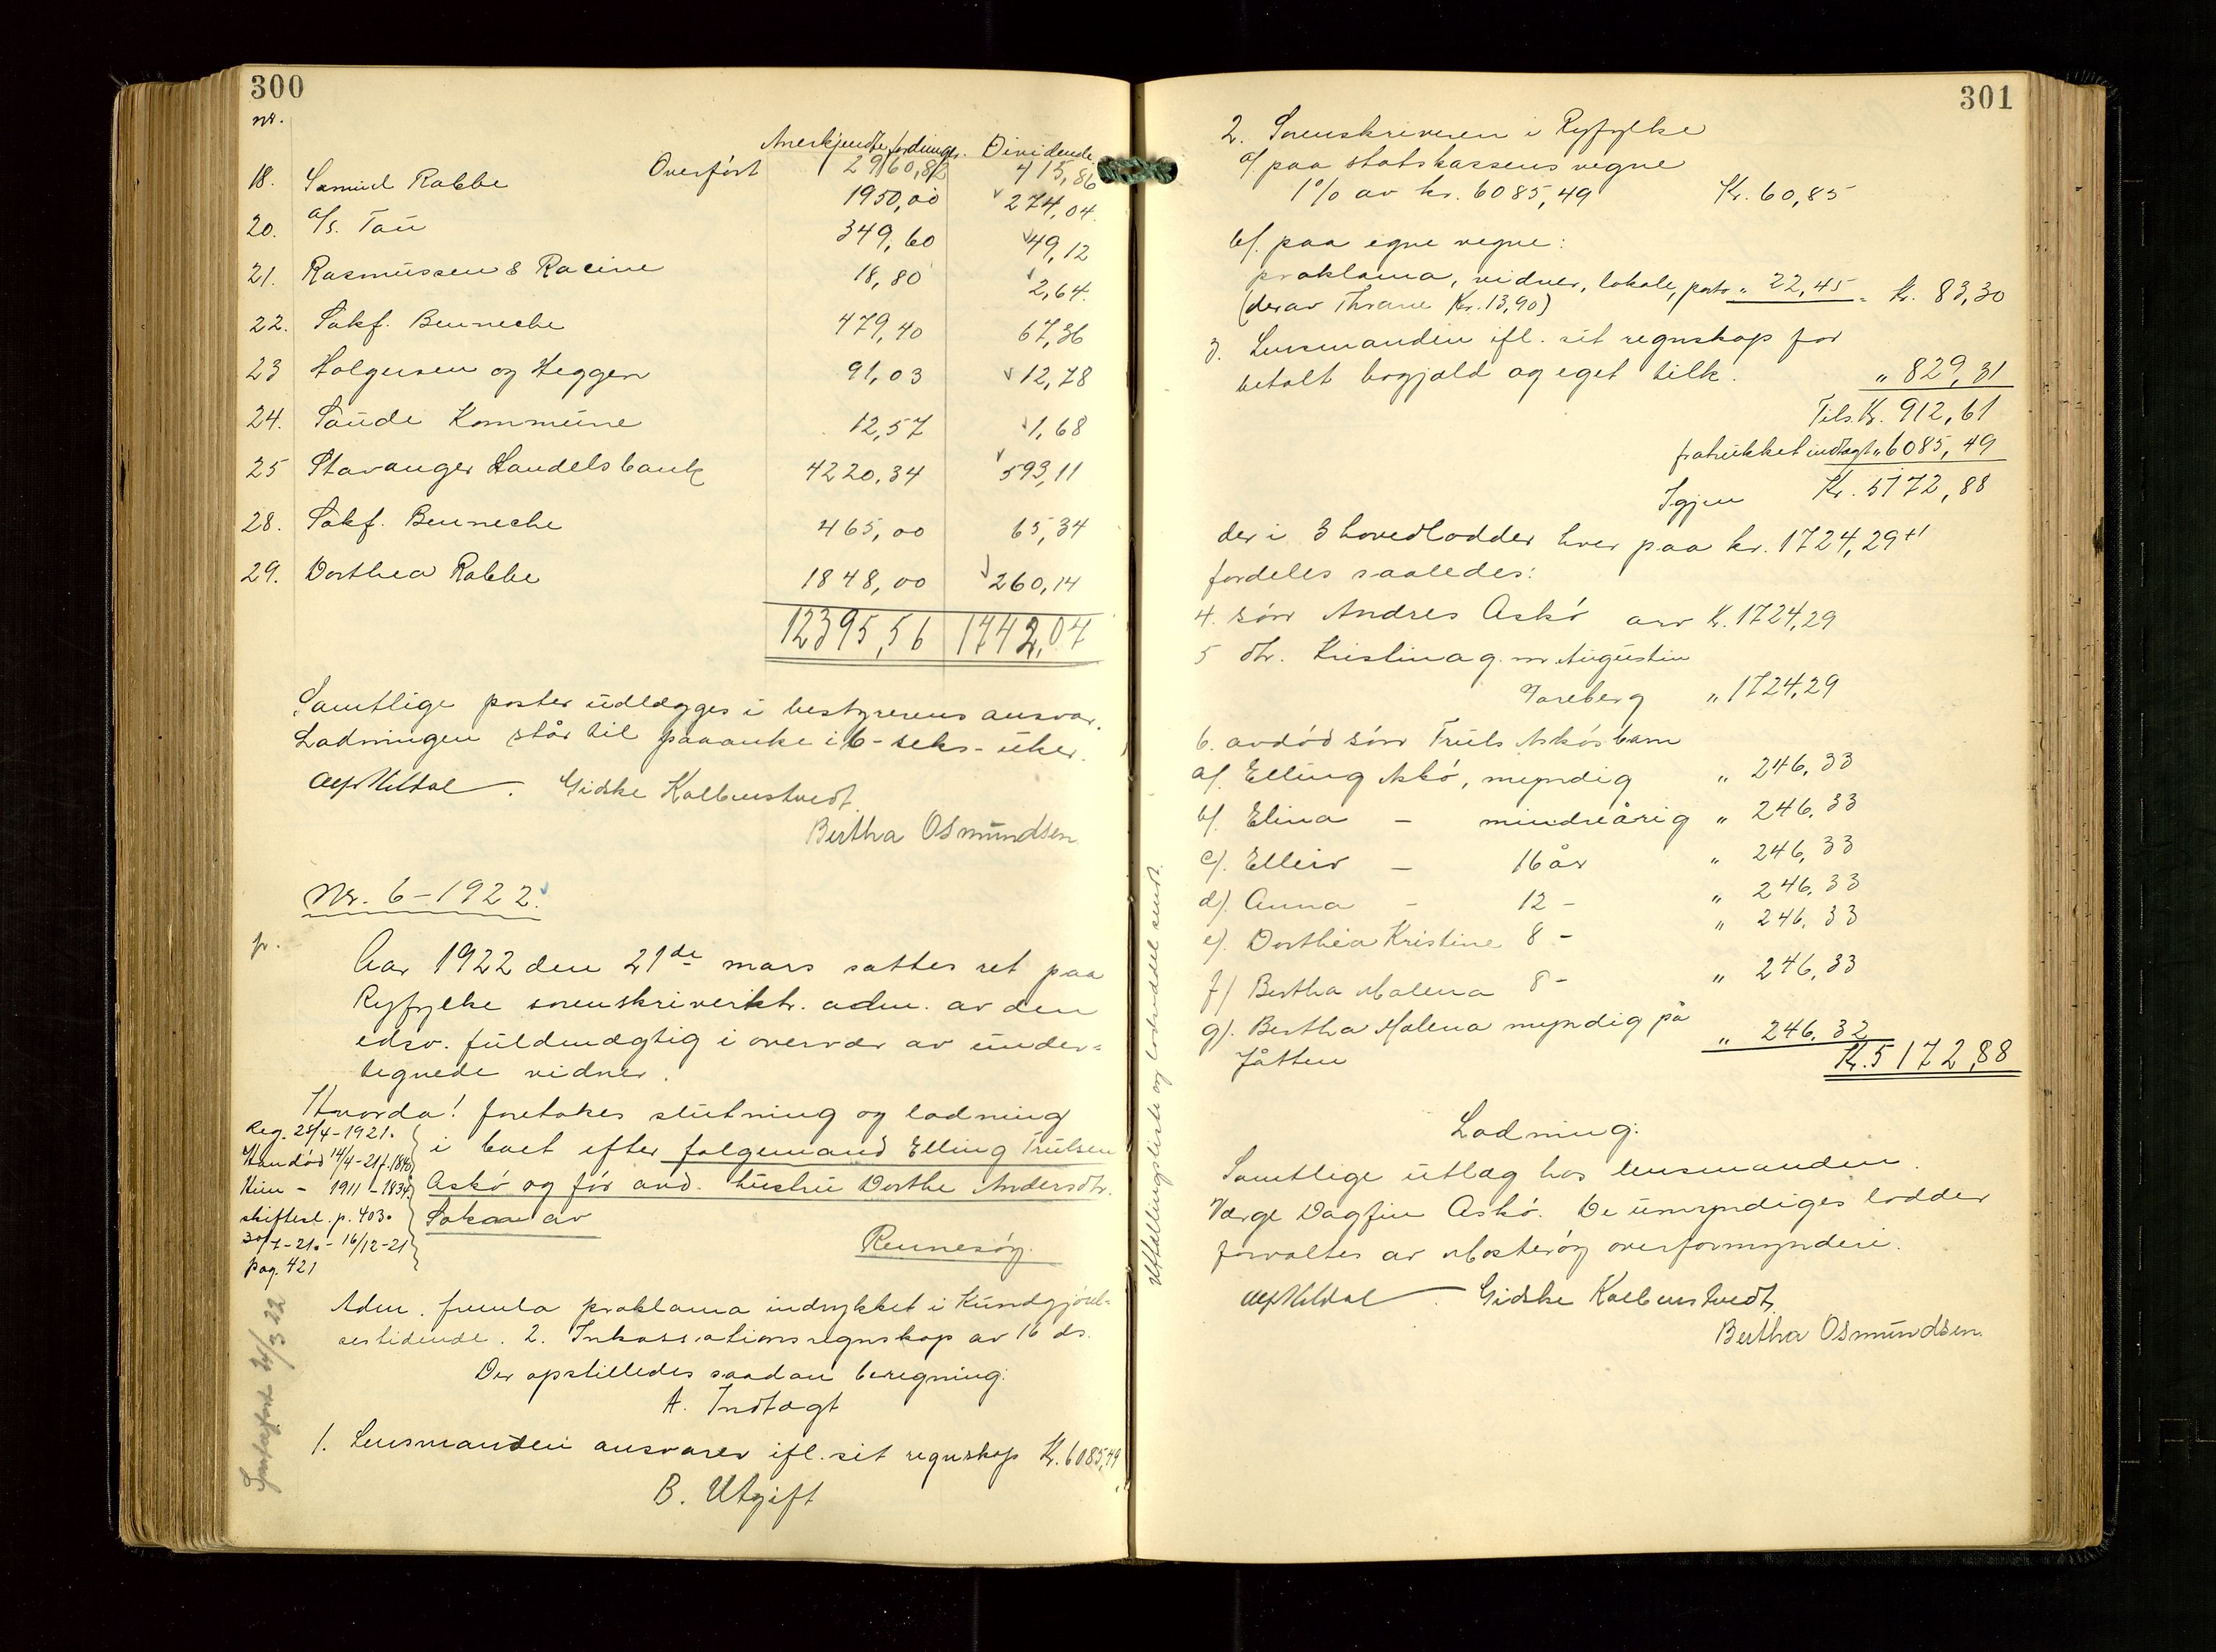 300
nr.
Anerkjendte fordringer. Dividende.
Overført 2960,82 415,86
18. Samuel Rabbe 1950,00 274,04
20. a/s. Tau 349,60 49,12
21. Rasmussen & Racine 18,80 2,64
22. Sakf. Benneche 479,40 67,36
23 Holgersen og Heggen 91,03 12,78
24. Saude Kommune 12,57 1,68
25 Stavanger Handelsbank 4220,34 593,11
28. Sakf. Benneche 465,00 65,34
29. Dorthea Rabbe 1848,00 260,14
12395,56 1742,04
Samtlige poster udlægges i bestyrerens ansvar.
Lodningen står til paaanke i 6-seks-uker.
Alf Mildal. Gidske Kolbenstvedt.
Bertha Osmundsen
Nr. 6-1922.
Aar 1922 den 21de mars sattes ret paa
Ryfylke sorenskriverktr. adm. av den
edsv. fuldmægtig i overvær av under-
tegnede vidner.
Hvorda! foretokes slutning og lodning
i boet efter følgemand Elling Trulsen
Askø og før avd. hustru Dorthe Andersdtr.
Sokan av
Rennesøy.
Reg. 28/4-1921.
Han død 14/4-21 f. 1840
Hun - 1911 - 1834
skiftesl. p. 403.
30/7-21. - 16/12-21
pag. 421
21/3 22
Adm. fremla proklama indrykket i Kundgjørel-
sestidende. 2. Inkassationsregnskap av 16 ds.
Der opstilledes saadan beregning:
A. Indtægt
1. Lensmanden ansvarer ifl. sit regnskap Kr. 6085,49
B. Utgift
301
2. Sorenskriveren i Ryfylke
a/ paa statskassens vegne
1% av kr. 6085,49 Kr. 60,85
b/. paa egne vegne:
proklama, vidner, lokale, porto „ 22,45 = Kr. 83,30
(derav Thrane Kr. 13,90)
3. Lensmanden ifl. sit regnskap for
betalt bogjæld og eget tilk. „ 829,31
Tils. Kr. 912,61
fratrukket indtægt „ 6085,49
Igjen Kr. 5172,88
der i 3 hovedlodder hver paa kr. 1724,29+1
fordeles saaledes:
4. søn Andres Askø arv Kr. 1724,29
5 dtr. Kristina g. m Augustin
Vareberg „ 1724,29
6. avdød søn Truls Askøs barn
a/. Elling Askø, myndig „ 246,33
b/. Elina - mindreårig „ 246,33
c/. Elleiv - 16 år „ 246,33
d/. Anna - 12 - „ 246,33
e/. Dorthea Kristine 8 - „ 246,33
f/ Bertha Malena 8 - „ 246,33
g/. Bertha Malena myndig på
Jåtten „ 246,32
Kr. 5172,88
Lodning:
Samtlige utlæg hos lensmanden.
Værge Dagfin Askø. De umyndiges lodder
forvaltes av Mosterøy overformynderi.
Alf Mildal. Gidske Kolbenstvedt.
Bertha Osmundsen.
Utfallingsliste og lodseddel sendt.